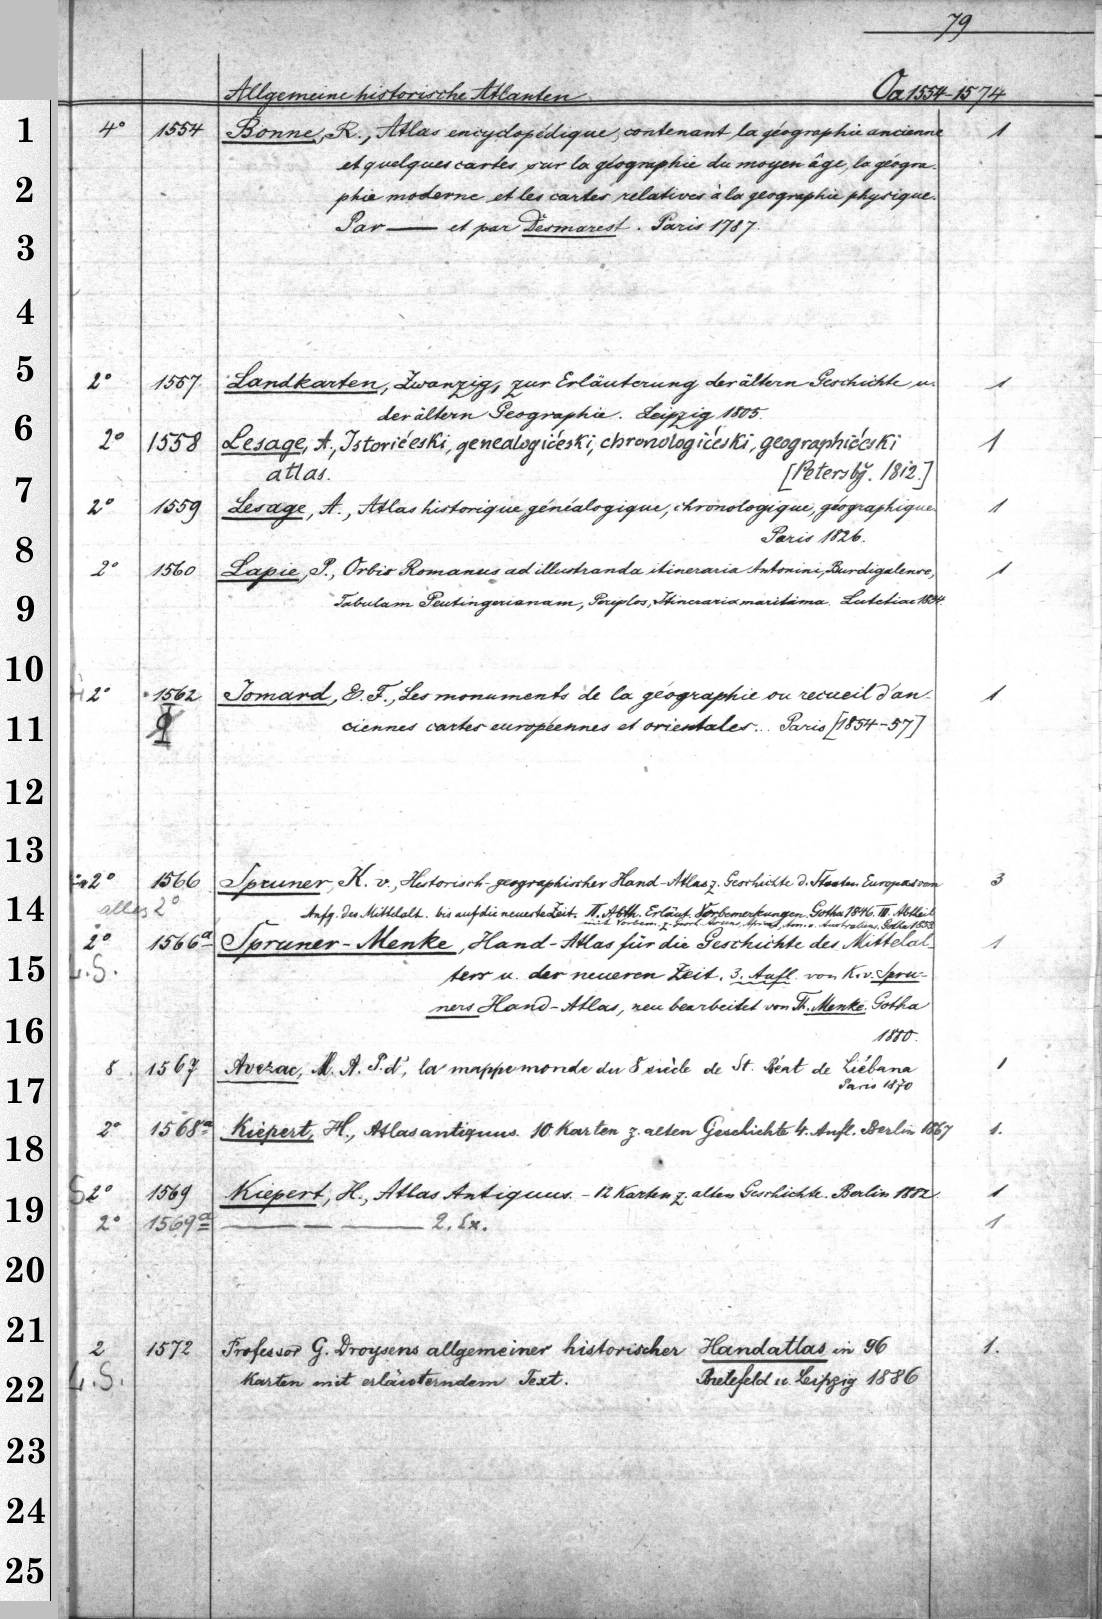 79
Allgemeine historische Atlanten Oa 1554-1574
1 4° 1554 Bonne, R., Atlas encyclopédique, contenant la géographie ancienne 1
2 et quelques cartes sur la géographie du moyen âge, la géogra-
phie moderne et les cartes relatives à la géographie physique.
3 Par —— et par Desmarest. Paris 1787.
4
5 2° 1557 Landkarten, Zwanzig, zur Erläuterung der ältern Geschichte u. 1
der ältern Geographie. Leipzig 1805.
6 2° 1558 Lesage, A., Istoričeski, genealogičeski, chronologičeski, geographičeski 1
7 atlas. [Petersbg. 1812.]
2° 1559 Lesage, A., Atlas historique, généalogique, chronologique, géographique. 1
8 Paris 1826.
2° 1560 Lapie, P., Orbis Romanus ad illustranda itineraria Antonini, Burdigalense, 1
9 Tabulam Peutingerianam, Periplos, Itineraria maritima. Lutetiae 1834.
10
2° 1562 Jomard, E. F., Les monuments de la géographie ou recueil d'an- 1
11 ciennes cartes européennes et orientales... Paris [1854-57]
12
13
2° 1566 Spruner, K. v., Historisch-geographischer Hand-Atlas z. Geschichte d. Staaten Europas vom 3
14 alles 2° Anfg. des Mittelalt. bis auf die neueste Zeit. II. Abth. Erläut. Vorbemerkungen. Gotha 1846. III. Abtheil.
mit Vorbem. z. Gesch. Asiens, Afrikas, Am. u. Australiens. Gotha 1853
2° 1566a Spruner-Menke, Hand-Atlas für die Geschichte des Mittelal- 1
15 L.S. ters u. der neueren Zeit. 3. Aufl. von K. v. Spru-
ners Hand-Atlas, neu bearbeitet von Th. Menke. Gotha
16 1880.
8 1567 Avezac, M. A. P. d', la mappemonde du 8 siècle de St. Béat de Liébana 1
17 Paris 1870
18 2° 1568a Kiepert, H., Atlas antiquus. 10 Karten z. alten Geschichte 4. Aufl. Berlin 1867 1.
19 S 2° 1569 Kiepert, H., Atlas Antiquus. - 12 Karten z. alten Geschichte. Berlin 1882. 1
2° 1569a —— — —— 2. Ex. 1
20
21
2 1572 Professor G. Droysens allgemeiner historischer Handatlas in 96 1.
22 L.S. Karten mit erläuterndem Text. Bielefeld u. Leipzig 1886
23
24
25